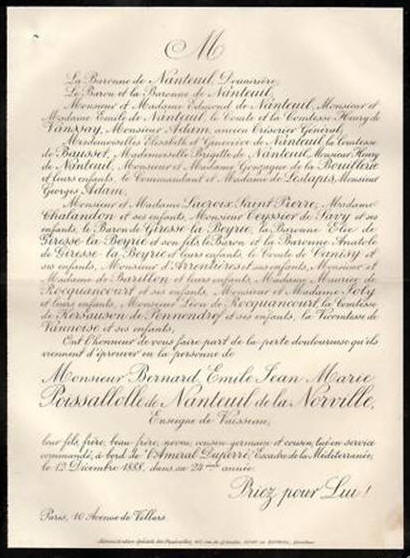 M
La Baronne de Nanteuil, Douairière,
Le Baron et la Baronne de Nanteuil,
Monsieur et Madame Edmond de Nanteuil, Monsieur et
Madame Emile de Nanteuil, le Comte et la Comtesse Henry de
Vanssay, Monsieur Adam, ancien Trésorier Général,
Mesdemoiselles Elisabeth et Geneviève de Nanteuil, la Comtesse
de Bausset, Mademoiselle Brigitte de Nanteuil, Monsieur Henry
de Nanteuil, Monsieur et Madame Gonzague de la Bouillerie
et leurs enfants, le Commandant et Madame de Lestapis, Monsieur
Georges Adam,
Monsieur et Madame Lacroix Saint Pierre, Madame
Chalandon et ses enfants, Monsieur Teyssier de Savy et ses
enfants, le Baron de Giresse la Beyrie, la Baronne Elie de
Giresse la Beyrie et son fils, le Baron et la Baronne Anatole
de Giresse la Beyrie et leurs enfants, le Comte de Canisy et
ses enfants, Monsieur d'Arrentières et ses enfants, Monsieur et
Madame de Barillon et leurs enfants, Madame Maurice de
Rocquancourt et ses enfants, Monsieur et Madame
et leurs enfants, Monsieur Léon de Rocquancourt, la Comtesse
de Kersauson de Pennendreff et ses enfants, la Vicomtesse de
Vannoise et ses enfants,
Ont l'honneur de vous faire part de la perte douloureuse qu'ils
viennent d'éprouver en la personne de
Monsieur Bernard, Emile Jean Marie
Poissallolle de Nanteuil de la Norville,
Enseigne de Vaisseau,
leur fils, frère, beau-frère, neveu, cousin-germain et cousin, tué en service
commandé, à bord de l'Amiral Duperré, Escadre de la Méditerranée,
le 13 Décembre 1888, dans sa 24ème année.
Priez pour Lui!
Paris, 10 Avenue de Villars.